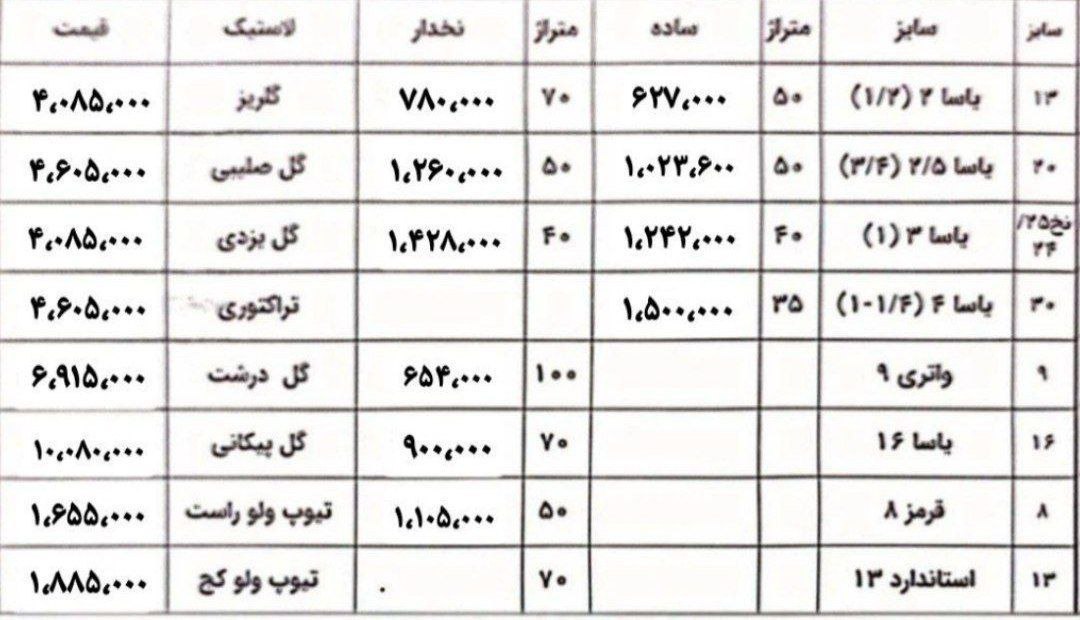 سایز سایز متراژ ساده متراژ نخدار لاستیک قیمت
۱۳ یاسا ۲ (۱/۲) ۵۰ ۶۲۷,۰۰۰ ۷۰ ۷۸۰,۰۰۰ گلریز ۴,۰۸۵,۰۰۰
۲۰ یاسا ۲/۵ (۳/۴) ۵۰ ۱,۰۲۳,۶۰۰ ۵۰ ۱,۲۶۰,۰۰۰ گل صلیبی ۴,۶۰۵,۰۰۰
نخ۲۵/
۲۴ یاسا ۳ (۱) ۴۰ ۱,۲۴۲,۰۰۰ ۴۰ ۱,۴۲۸,۰۰۰ گل یزدی ۴,۰۸۵,۰۰۰
۳۰ یاسا ۴ (۱-۱/۴) ۳۵ ۱,۵۰۰,۰۰۰ تراکتوری ۴,۶۰۵,۰۰۰
۹ واتری ۹ ۱۰۰ ۶۵۴,۰۰۰ گل درشت ۶,۹۱۵,۰۰۰
۱۶ یاسا ۱۶ ۷۰ ۹۰۰,۰۰۰ گل پیکانی ۱۰,۰۸۰,۰۰۰
۸ قرمز ۸ ۵۰ ۱,۱۰۵,۰۰۰ تیوپ ولو راست ۱,۶۵۵,۰۰۰
۱۳ استاندارد ۱۳ ۷۰ . تیوپ ولو کج ۱,۸۸۵,۰۰۰